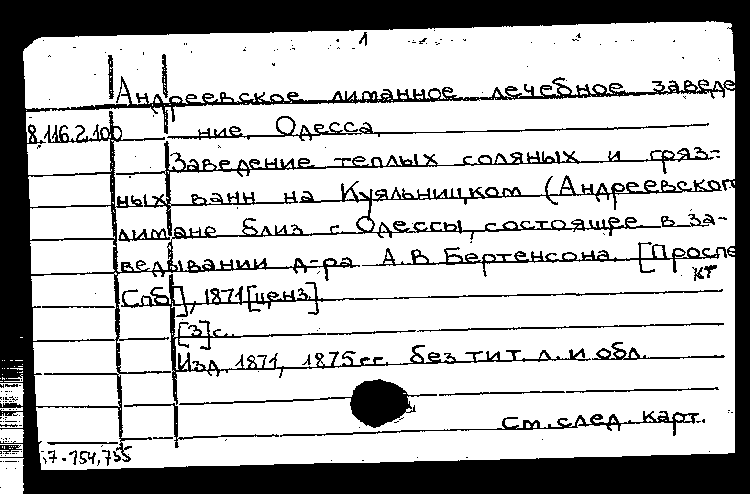 1
Андреевское лиманное лечебное заведе
8.116.2.100 ние. Одесса.
Заведение теплых соляных и гряз-
ных ванн на Куяльницком (Андреевском
лимане близ г. Одессы, состоящее в за-
ведывании д-ра А.В Бертенсона. [Проспе
кт
Спб], 1871 [ценз].
[3] с.
Изд. 1871, 1875 гг. без тит. л. и обл.
См. след. карт.
57-754,755